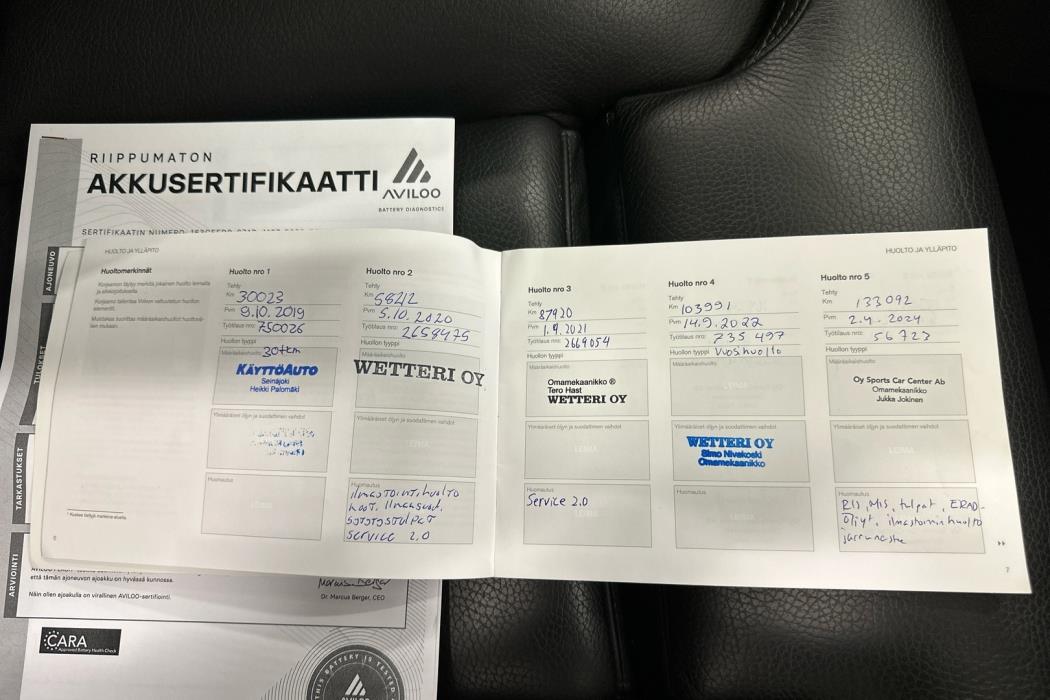 RIIPPUMATON
AKKUSERTIFIKAATTI
AVILOO
BATTERY DIAGNOSTICS
SERTIFIKAATIN NUMERO
AJONEUVO
TULOKSET
TARKASTUKSET
ARVIOINTI
HUOLTO JA YLLÄPITO
Huoltomerkinnät
Huolto nro 1
Tehty
Km 30023
Pvm 9.10.2019
Työtilaus nro: 750026
Huollon tyyppi
Määräaikaishuolto 30tkm
KÄYTTÖAUTO
Seinäjoki
Heikki Palomäki
Ylimääräiset öljyn ja suodattimen vaihdot
Huomautus
6
Huolto nro 2
Tehty
Km
Pvm 5.10.2020
Työtilaus nro: 2658475
Huollon tyyppi
Määräaikaishuolto
WETTERI OY
Ylimääräiset öljyn ja suodattimen vaihdot
Huomautus
ilmastointihuolto
SERVICE 2.0
Huolto nro 3
Tehty
Km 87920
Pvm 1.9.2021
Työtilaus nro: 2669054
Huollon tyyppi
Määräaikaishuolto
Omamekaanikko ®
Tero Hast
WETTERI OY
Ylimääräiset öljyn ja suodattimen vaihdot
Huomautus
Service 2.0
Huolto nro 4
Tehty
Km 103991
Pvm 14.9.2022
Työtilaus nro: 735 497
Huollon tyyppi Vuosihuolto
Määräaikaishuolto
Ylimääräiset öljyn ja suodattimen vaihdot
WETTERI OY
Simo Nivakoski
Omamekaanikko
Huomautus
HUOLTO JA YLLÄPITO
Huolto nro 5
Tehty
Km 133092
Pvm 2.4.2024
Työtilaus nro: 56723
Huollon tyyppi
Määräaikaishuolto
Oy Sports Car Center Ab
Omamekaanikko
Jukka Jokinen
Ylimääräiset öljyn ja suodattimen vaihdot
Huomautus
tulpat, ERAD-
öljyt, ilmastoinnin huolto
jarruneste
7
että tämän ajoneuvon ajoakku on hyvässä kunnossa.
Näin ollen ajoakulla on virallinen AVILOO-sertifiointi.
Dr. Marcus Berger, CEO
CARA
Approved Battery Health Check
THIS BATTERY IS TESTED
AVILOO